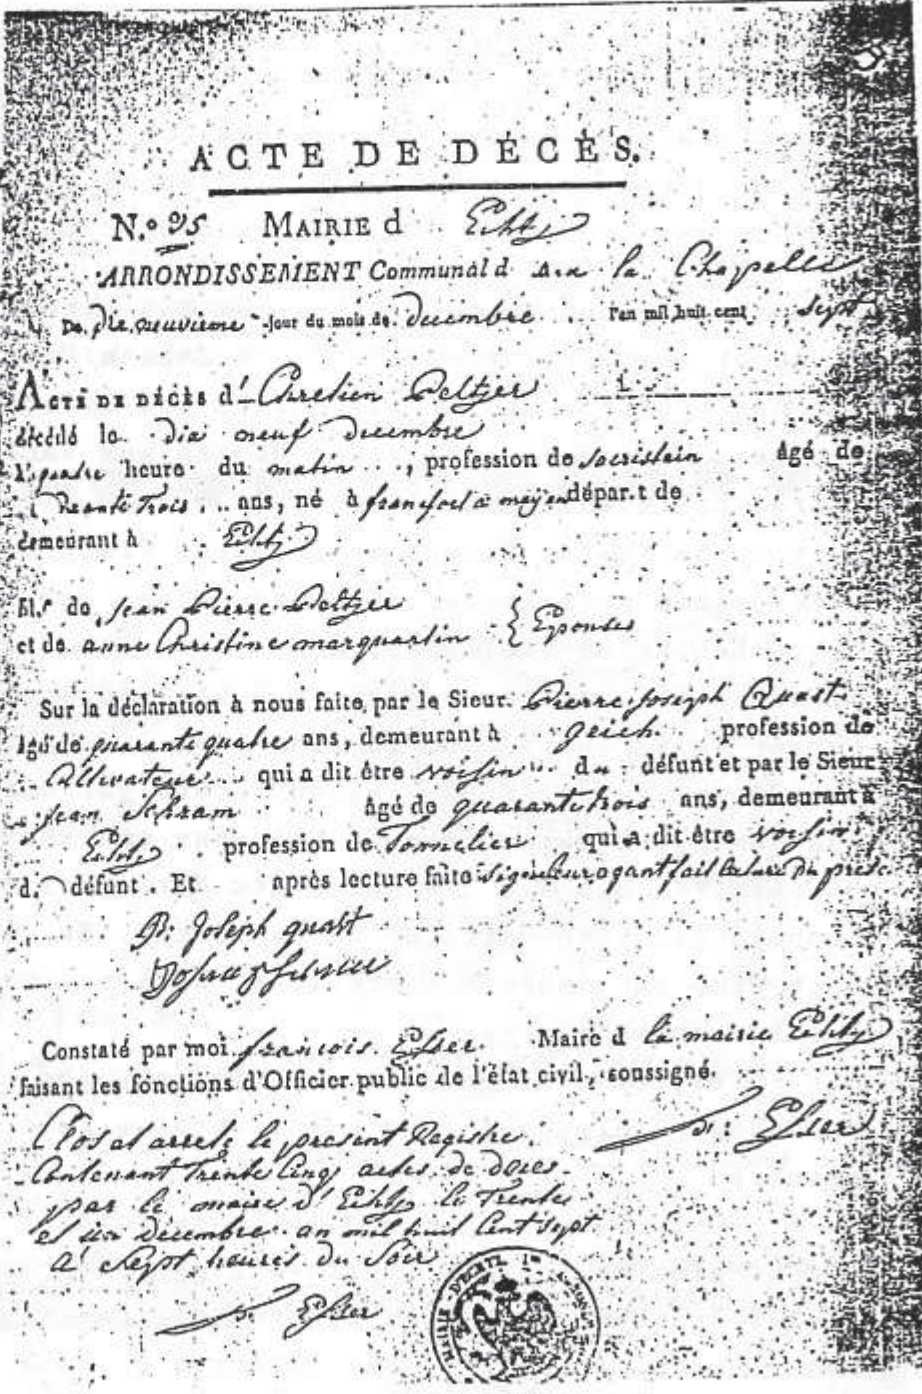 ACTE DE DÉCÈS.
N.º 35 MAIRIE d Echtz
ARRONDISSEMENT Communal d Aix la Chapelle
Du dix neuvieme jour du mois de decembre l'an mil huit cent sept
ACTE DE DÉCÈS d' Chretien Peltzer
décédé le dix neuf decembre
à quatre heure du matin, profession de sacristain âgé de
trente trois ans, né à francfort a mayn départ. de
demeurant à Echtz
fils de Jean Pierre Peltzer
et de anne Christine marquartin } Epouses
Sur la déclaration à nous faite par le Sieur Pierre Joseph Quast
âgé de quarante quatre ans, demeurant à Geich profession de
Cultivateur qui a dit être voisin du défunt et par le Sieur
Jean Schram âgé de quarante trois ans, demeurant à
Echtz profession de Tonnelier qui a dit être voisin
d. défunt. Et après lecture faite ayant fait lecture du pres.
P: Joseph quast
Constaté par moi francois Esser Maire d la mairie Echtz
faisant les fonctions d'Officier public de l'état civil, soussigné.
Esser
Clos et arrete le present Registre
Contenant Trente Cinq actes de deces
par le maire d'Echtz le Trente
et un Decembre an mil huit Cent sept
a Sept heures du Soir
Esser
MAIRIE D'ECHTZ